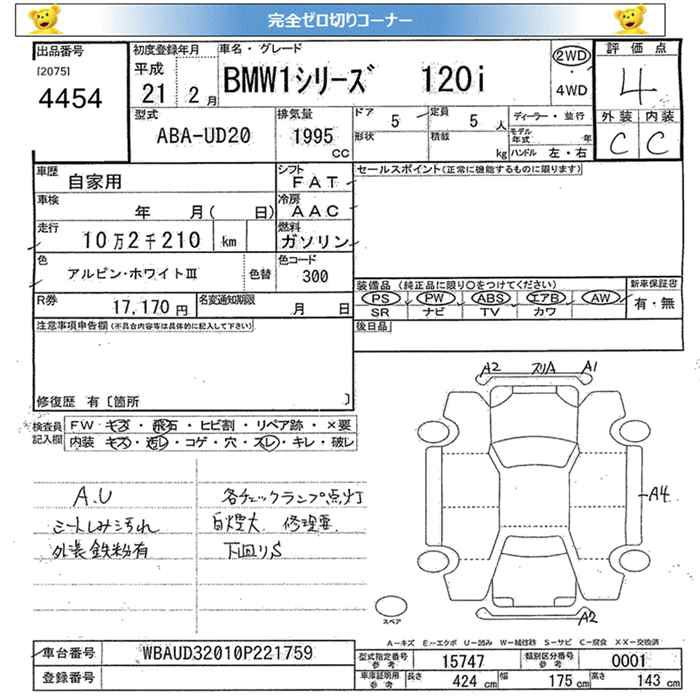 完全ゼロ切りコーナー
出品番号 初度登録年月 車名・グレード 評価点
[2075] 平成 2WD
4454 21 2月 BMW1シリーズ 120i ・ 4
4WD
型式 排気量 ドア 5 定員 5人 ディーラー・並行 外装 内装
ABA-UD20 1995 形状 積載 モデル年式 年 C C
CC kg ハンドル 左・右
車歴 シフト セールスポイント(正常に機能するものに限ります)
自家用 FAT
車検 冷房
年 月( 日) AAC
走行 燃料
10万2千210 km ガソリン
色 色コード
アルピン・ホワイトIII 色替 300 装備品 (純正品に限り○をつけてください) 新車保証書
PS PW ABS エアB AW 有・無
R券 17,170円 名変通知期限 月 日 SR ナビ TV カワ
注意事項申告欄(不具合内容等は具体的に記入して下さい) 後日品
A2 スリA A1
修復歴 有〔箇所 〕
検査員 FW キズ・飛石・ヒビ割・リペア跡・×要
記入欄 内装 キズ・汚レ・コゲ・穴・スレ・キレ・破レ
A.U 各チェックランプ点灯 A4
シートしみ汚れ 白煙大 修理要
外装鉄粉有 下回りS
A2
スペア
A-キズ E-エクボ U-凹み W-補修跡 S-サビ C-腐食 XX-交換済
車台番号 WBAUD32010P221759 型式指定番号 参考 15747 類別区分番号 参考 0001
登録番号 車庫証明用 参考 長さ 424 cm 幅 175 cm 高さ 143 cm